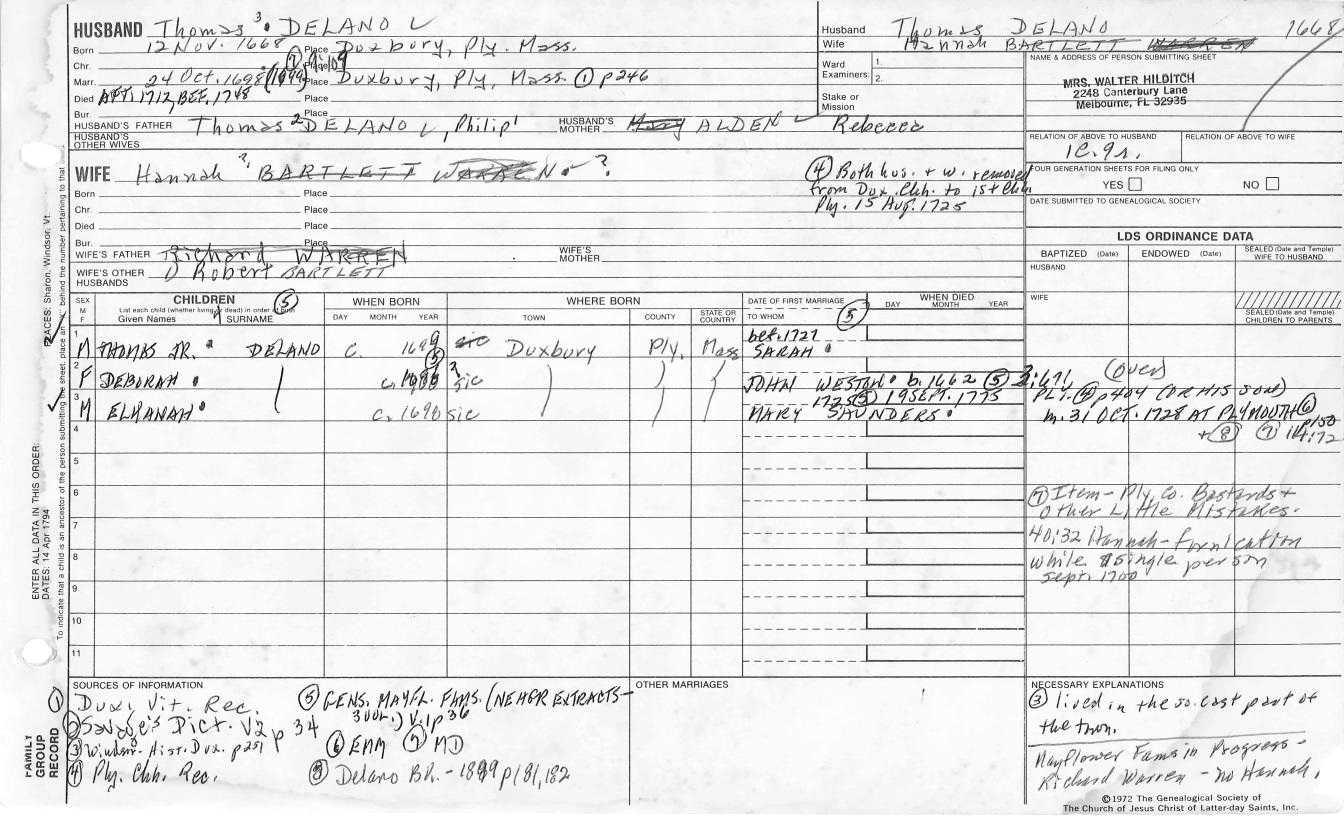 HUSBAND Thomas 3 DELANO
Born 12 Nov. 1668 Place Duxbury, Ply. Mass.
Chr. Place
Marr. 24 Oct. 1698 (1699) Place Duxbury, Ply, Mass. ① p246
Died APT. 1712, BEF. 1748 Place
Bur. Place
HUSBAND'S FATHER Thomas 2 DELANO, Philip 1 HUSBAND'S MOTHER Mary ALDEN Rebecca
HUSBAND'S OTHER WIVES
Husband Thomas DELANO 1668
Wife Hannah BARTLETT WARREN
Ward Examiners: 1.
2.
Stake or Mission
NAME & ADDRESS OF PERSON SUBMITTING SHEET
MRS. WALTER HILDITCH
2248 Canterbury Lane
Melbourne, FL 32935
RELATION OF ABOVE TO HUSBAND RELATION OF ABOVE TO WIFE
1C.9r.
FOUR GENERATION SHEETS FOR FILING ONLY
YES NO
DATE SUBMITTED TO GENEALOGICAL SOCIETY
WIFE Hannah ? BARTLETT WARREN ?
④ Both hus. + w. removed
from Dux. Chh. to 1st Chh.
Ply. 15 Aug. 1725
Born Place
Chr. Place
Died Place
Bur. Place
WIFE'S FATHER Richard WARREN WIFE'S MOTHER
WIFE'S OTHER HUSBANDS Robert BARTLETT
LDS ORDINANCE DATA
BAPTIZED (Date) ENDOWED (Date) SEALED (Date and Temple) WIFE TO HUSBAND
HUSBAND
WIFE
SEALED (Date and Temple) CHILDREN TO PARENTS
SEX M F CHILDREN ⑤ WHEN BORN WHERE BORN DATE OF FIRST MARRIAGE WHEN DIED
List each child (whether living or dead) in order of birth
Given Names SURNAME DAY MONTH YEAR TOWN COUNTY STATE OR COUNTRY TO WHOM ⑤ DAY MONTH YEAR
1 M THOMAS JR. DELANO c. 1699 sic Duxbury Ply. Mass bef. 1727 SARAH
2 F DEBORAH c. sic JOHN WESTON b. 1662 ⑤ (over)
3 M ELHANAH c. 1690 sic 1725 ⑤ 19 SEPT. 1775 MARY SAUNDERS
PLY. ④ p404 (OR HIS SON)
m. 31 OCT. 1728 AT PLYMOUTH ⑥
+ ⑧ ⑦ 14:72 p150
4
5
6
7
8
9
10
11
⑦ Item - Ply. Co. Bastards +
other Little Mistakes.
40:32 Hannah - fornication
while single person
Sept. 1700
ENTER ALL DATA IN THIS ORDER:
DATES: 14 Apr 1794
PLACES: Sharon, Windsor, Vt.
To indicate that a child is an ancestor of the person submitting the sheet, place an "X" behind the number pertaining to that
FAMILY GROUP RECORD
SOURCES OF INFORMATION
① Dux. Vit. Rec.
② Savage's Dict. V2 p 34
③ Windsor-Hist. Dux. p251
④ Ply. Chh. Rec.
⑤ GENS. MAYFL. FAMS. (NEHGR EXTRACTS-
3 VOL.) V.1 p36
⑥ EMM ⑦ MD
⑧ Delano BK. - 1899 p181,182
OTHER MARRIAGES
NECESSARY EXPLANATIONS
③ lived in the so. east part of
the town.
Mayflower Fams in Progress -
Richard Warren - no Hannah.
©1972 The Genealogical Society of
The Church of Jesus Christ of Latter-day Saints, Inc.